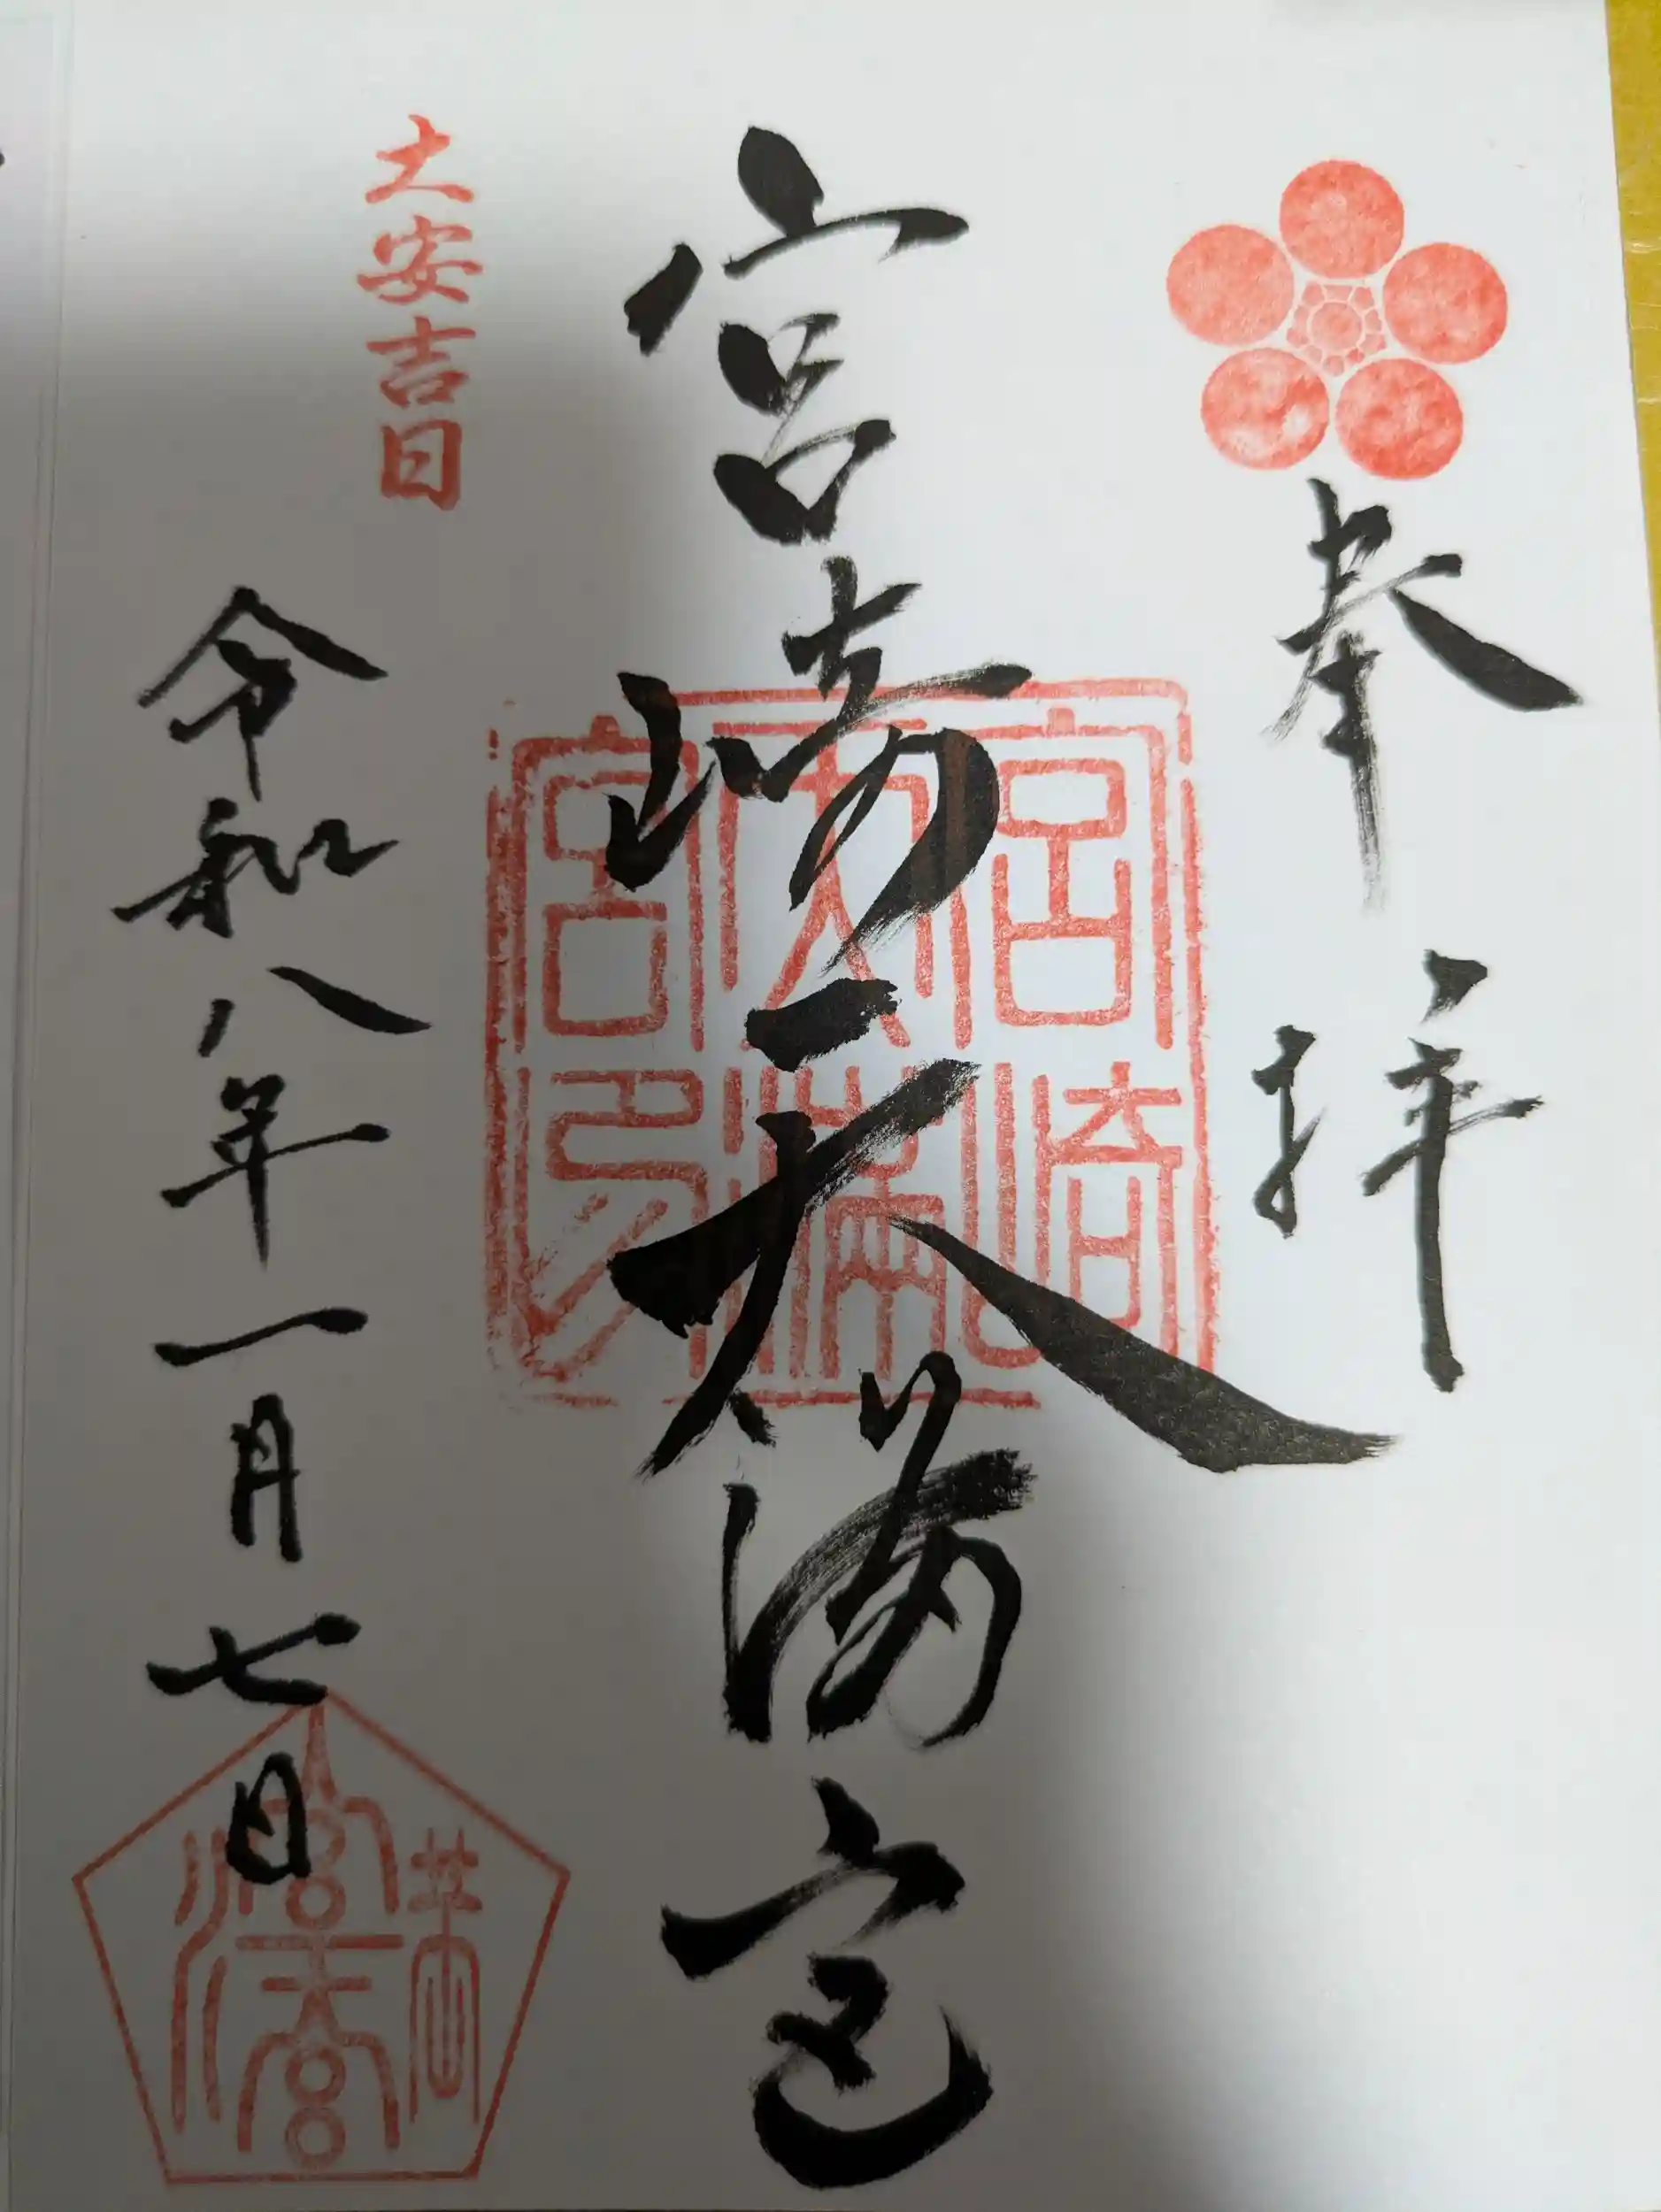 奉拝
宮崎天満宮
宮崎
天滿
宮印
大安吉日
令和八年一月七日